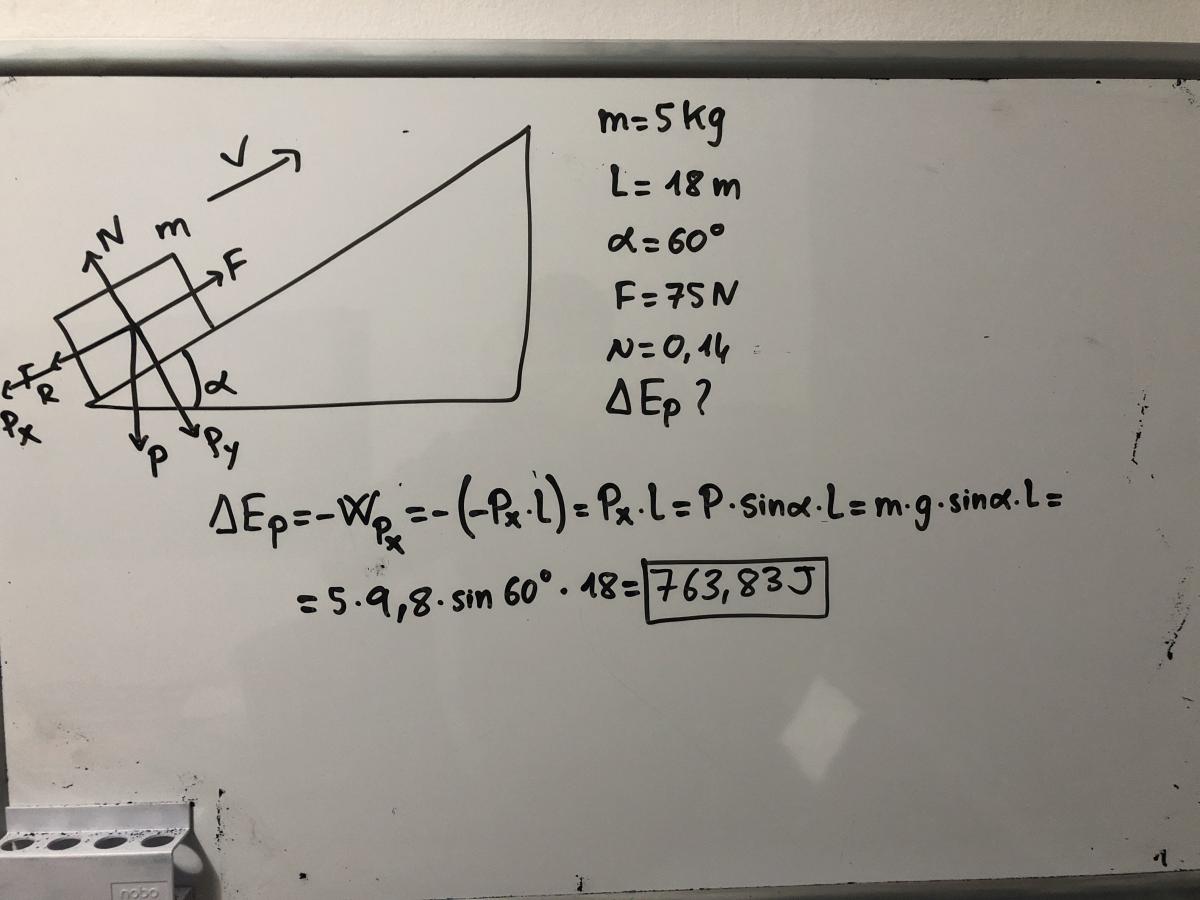 V
N
m
F
F_R
P_x
α
P
P_y
m=5Kg
L=18m
α=60°
F=75N
N=0,14
ΔE_p?
ΔE_p=-W_Px=-(-P_x·L)=P_x·L=P·sinα·L=m·g·sinα·L=
=5·9,8·sin 60°·18=763,83J
nobo